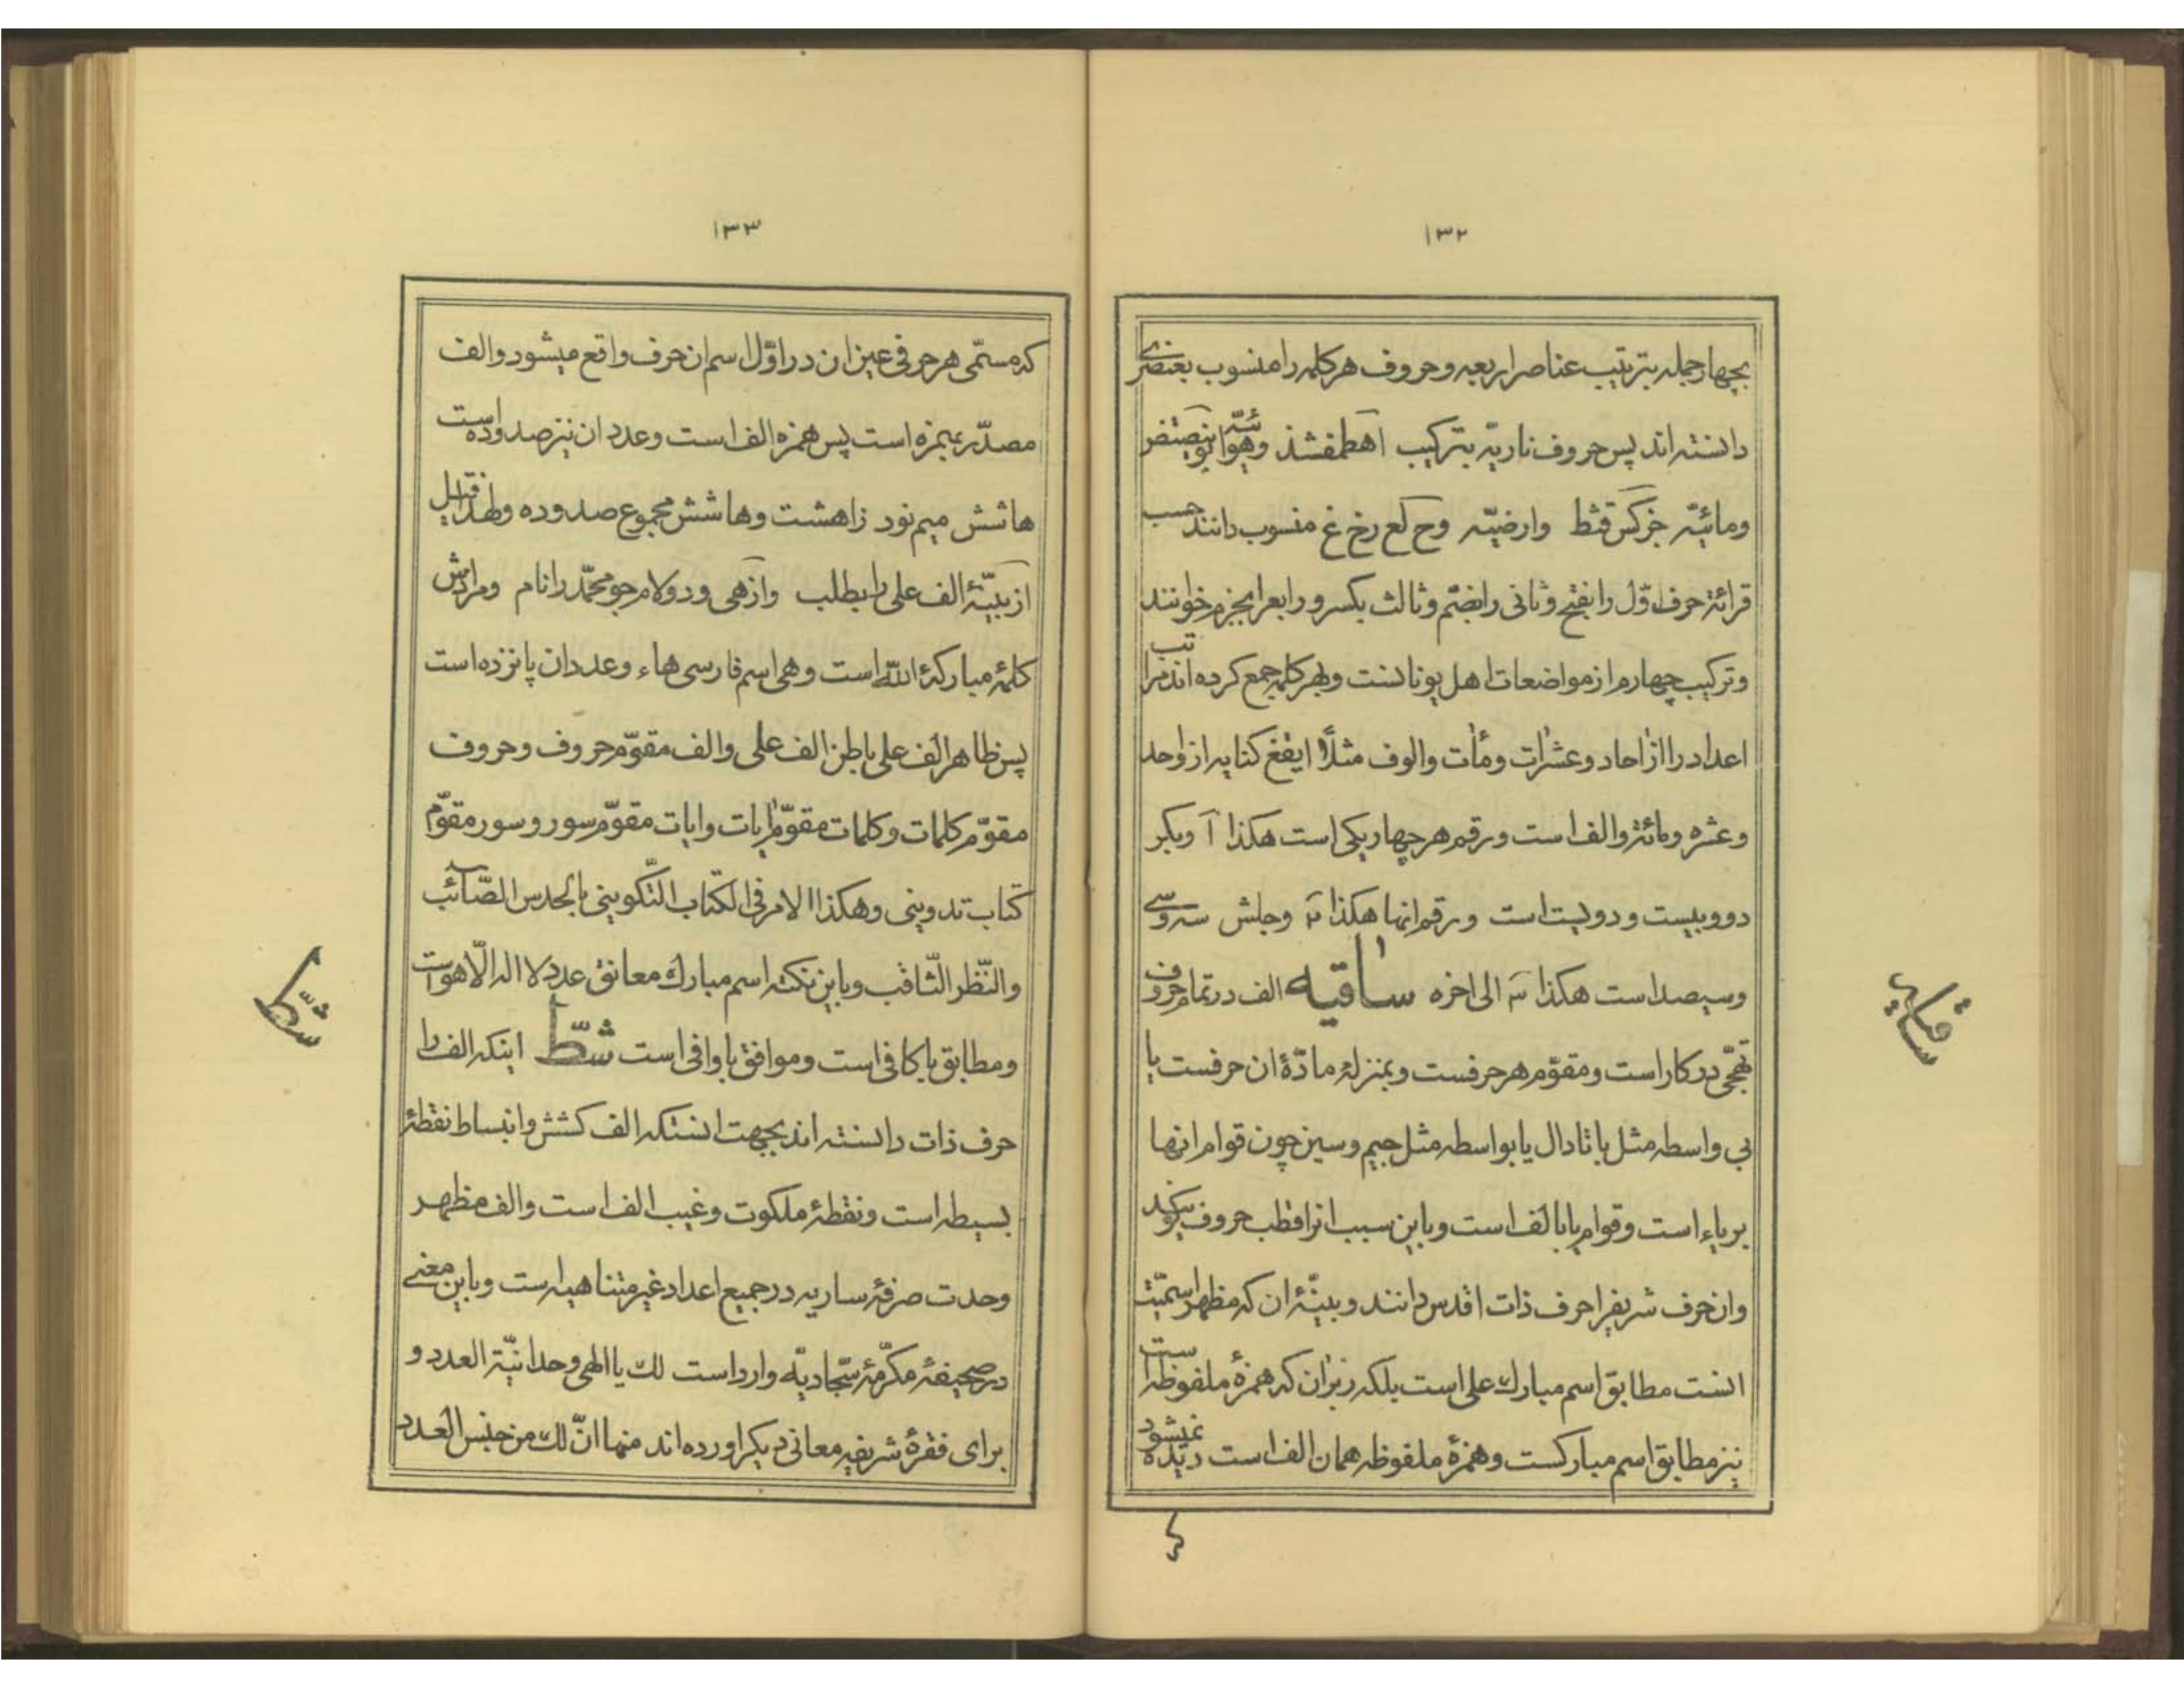 ۱۳۲
بچهار جمله بترتیب عناصر اربعه وحروف هر کلمه را منسوب بعنصری
دانسته اند پس حروف ناریّه بترکیب اهطمفشذ وهوائیّه بوینصتض
ومائیّه جزکس قثظ وارضیّه دح لع رخ غ منسوب دانند حسب
قرائة حرف اوّل را بفتح وثانی را بضّم وثالث بکسر ورابع را بجزم خوانند
وترکیب چهارم از مواضعات اهل یونانست وبهر کلمه جمع کرده اند مراتب
اعداد را از احاد وعشرات ومأت والوف مثلاً ایقغ کنایه از واحد
وعشره ومائة والف است ورقم هر چهار یکی است هکذا آ وبکر
دو وبیست ودویست است ورقم انها هکذا ۲ وجلش سه وسی
وسیصد است هکذا ۳ الی اخره ساقیه الف در تمام حروف
تهجّی در کار است ومقوّم هر حرفست وبمنزلهٔ مادّهٔ ان حرفست یا
بی واسطه مثل با تا دال یا بواسطه مثل جیم وسین چون قوام انها
بر یاء است وقوام یا با الف است وباین سبب انرا قطب حروف میگویند
وان حرف شریف را حرف ذات اقدس دانند وبینّهٔ ان که مظهر اسمیّت
انست مطابق اسم مبارك علی است بلکه زبر ان که همزهٔ ملفوظه است
نیز مطابق اسم مبارکست وهمزهٔ ملفوظه همان الف است دیده نمیشود
ساقیه
۱۳۳
که مسمّی هر حرفی عین ان در اوّل اسم ان حرف واقع میشود والف
مصدّر بهمزه است پس همزه الف است وعدد ان نیز صد وده است
ها شش میم نود زا هشت وها شش مجموع صد وده ولهذا قیل
از بیّنهٔ الف علی را بطلب وازهی ودو لام جو محمّد را نام ومرادش
کلمهٔ مبارکهٔ الله است وهی اسم فارسی هاء وعدد ان پانزده است
پس ظاهر الف علی باطن الف علی والف مقوّم حروف وحروف
مقوّم کلمات وکلمات مقوّم ایات وایات مقوّم سور وسور مقوّم
کتاب تدوینی وهکذا الامر فی الکتاب التّکوینی بالحدس الصّائب
والنّظر الثّاقب وباین نکته اسم مبارك معانق عدد لا اله الّا هو است
ومطابق با کافی است وموافق با وافی است شطّ اینکه الف را
حرف ذات دانسته اند بجهت انستکه الف کشش وانبساط نقطهٔ
بسیطه است ونقطهٔ ملکوت وغیب الف است والف مظهر
وحدت صرفهٔ ساریه در جمیع اعداد غیر متناهیه است وباین معنی
در صحیفهٔ مکرّمهٔ سجّادیّه وارد است لك یا الهی وحدانیّة العدد و
برای فقرهٔ شریفه معانی دیکر اورده اند منها انّ لك من جنس العدد
شطّ